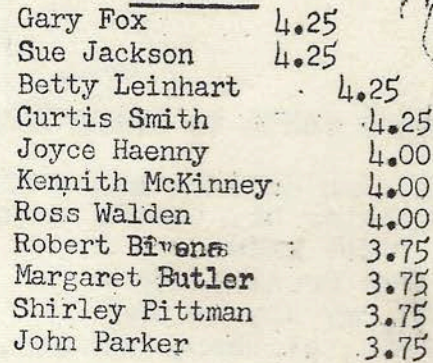 Gary Fox 4.25
Sue Jackson 4.25
Betty Leinhart 4.25
Curtis Smith 4.25
Joyce Haenny 4.00
Kennith McKinney 4.00
Ross Walden 4.00
Robert Bivens 3.75
Margaret Butler 3.75
Shirley Pittman 3.75
John Parker 3.75